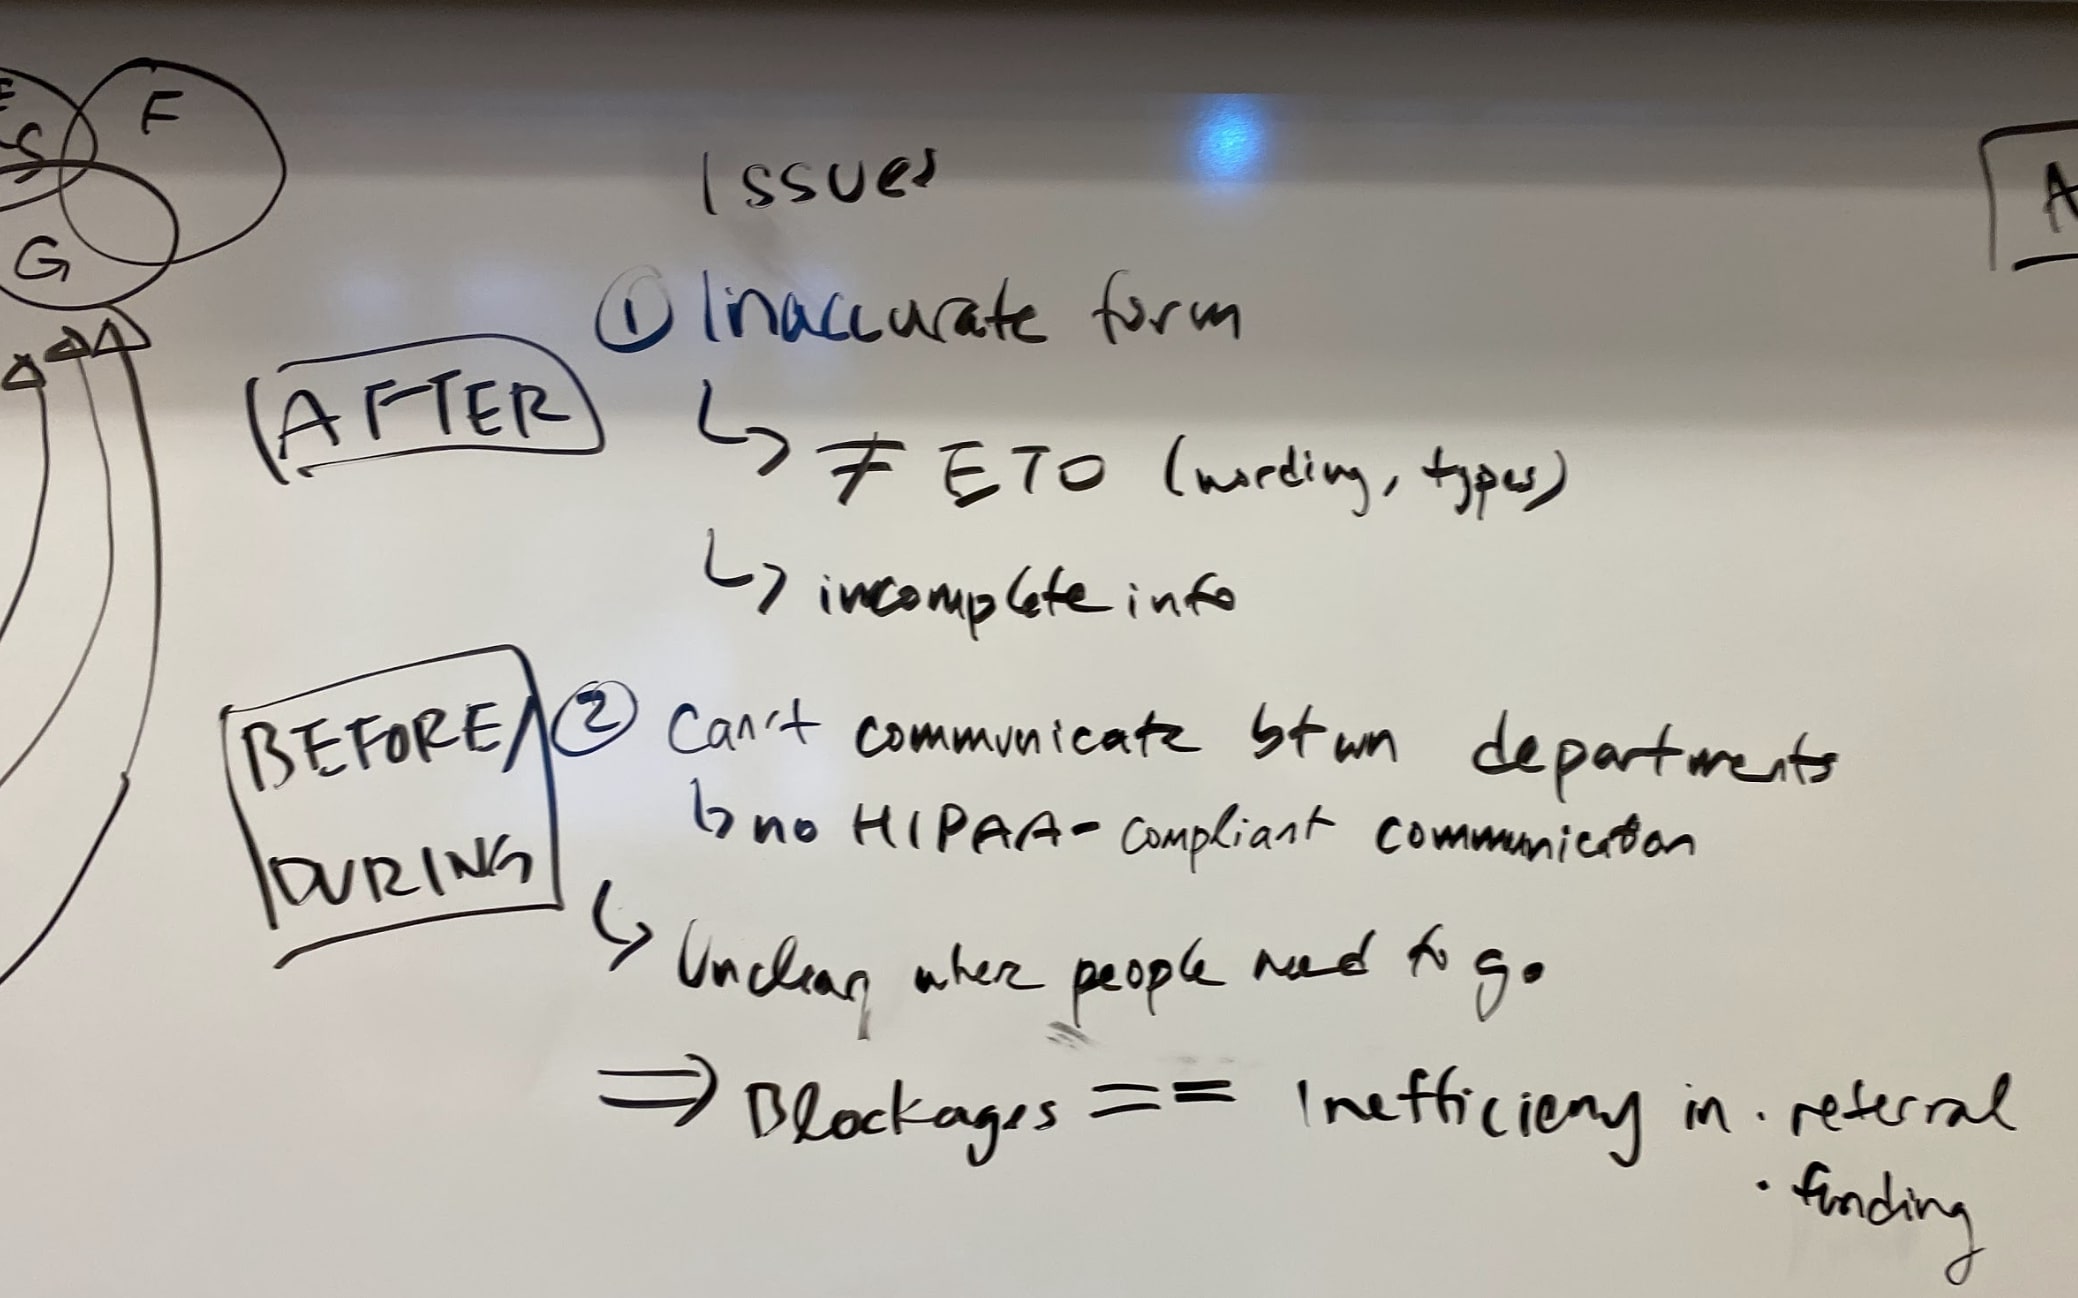 F
S
G
Issues
① Inaccurate form
AFTER
↳ ≠ ETO (wording, types)
↳ incomplete info
BEFORE/
DURING
② Can't communicate btwn departments
↳ no HIPAA-compliant communication
↳ Unclear where people need to go
⇒ Blockages == Inefficiency in · referral
· funding
A